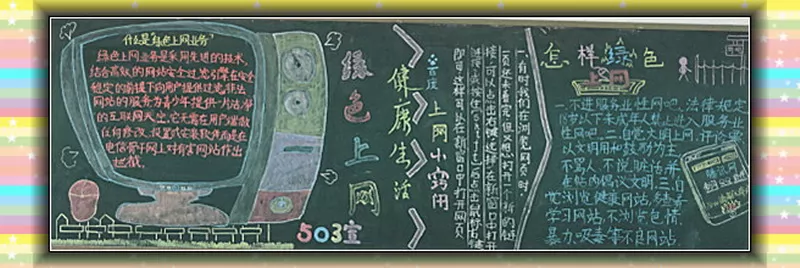 什么是绿色上网业务
绿色上网业务是采用先进的技术,
结合高效的网站安全过滤引擎在安全
规定的前提下向用户提供过滤非法
网站的服务为青少年提供一片洁净
的互联网天空,它无需在用户端做
任何修改、设置或安装软件而是在
电信骨干网上对有害网站作出
拦截.
绿色上网
503宣
健康生活
上网小窍门
一.有时我们在浏览网页时,
一页还未看完,但又想打开一个新的链
接,可以点击右键选择在新窗口中打开
即可这样可以在新窗口中打开网页
怎样绿色
一.不进服务业性网吧.法律规定
18岁以下未成年人禁止进入服务业
性网吧.二.自觉文明上网,评论要
以文明用和鼓励为主
不骂人,不说脏话并
在站内倡议文明.三.自
觉浏览健康网站,多看
学习网站,不浏览色情,
暴力,吸毒等不良网站.